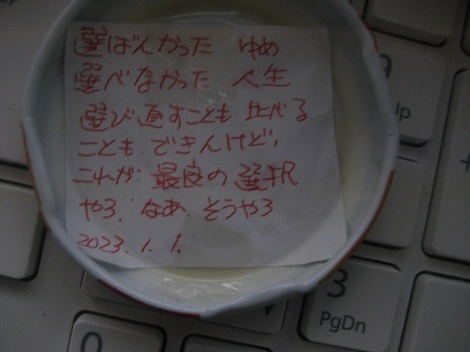 選ばんかった ゆめ
選べなかった 人生
選び直すことも 比べる
ことも できんけど、
これが 最良の選択
やろ、なあ、そうやろ
2023.1.1.
9
Up
3
PgDn
0
+